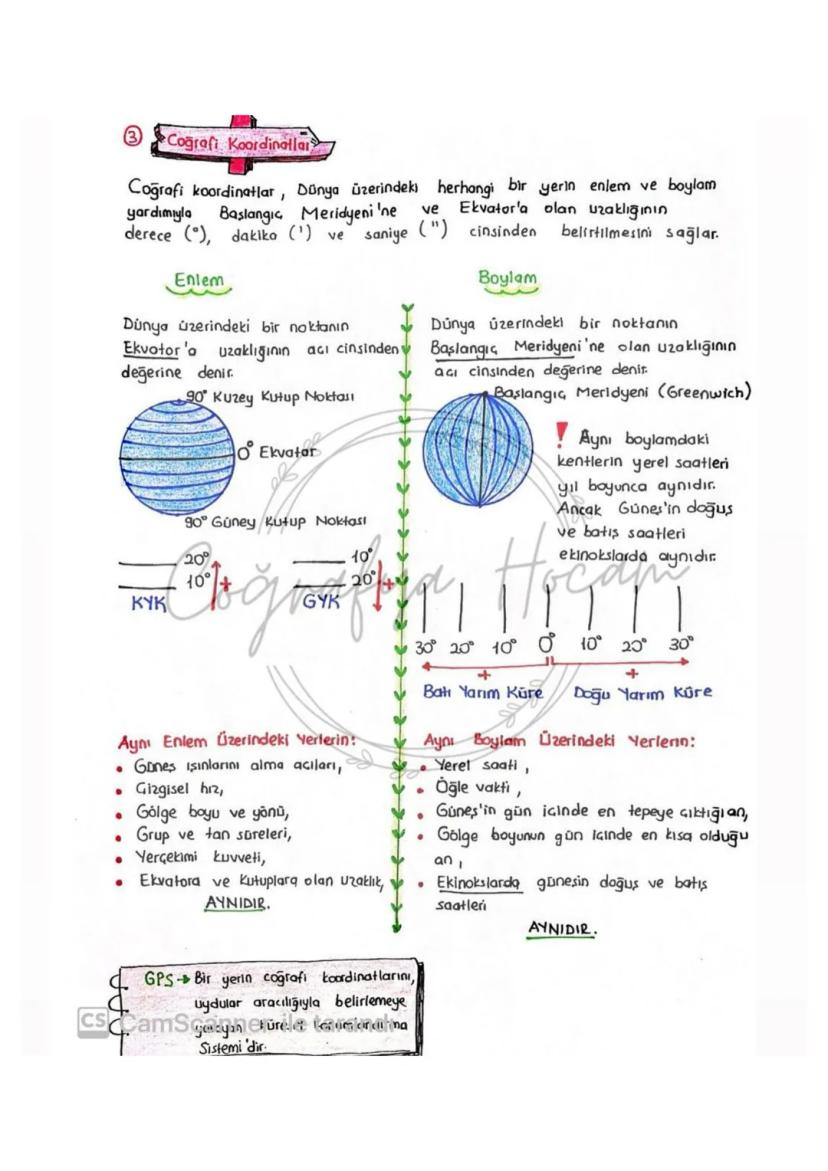 3 Coğrafi Koordinatlar
Coğrafi koordinatlar, Dünya üzerindeki herhangi bir yerin enlem ve boylam
yardımıyla Başlangıç Meridyeni'ne ve Ekvator'a olan uzaklığının
derece (°), dakika (') ve saniye (") cinsinden belirtilmesini sağlar.
Enlem
Dünya üzerindeki bir noktanın
Ekvator'a uzaklığının açı cinsinden
değerine denir.
90° Kuzey Kutup Noktası
0° Ekvator
90° Güney Kutup Noktası
20°
10°
+
KYK
10°
20°
+
GYK
Aynı Enlem Üzerindeki Yerlerin:
• Güneş ışınlarını alma açıları,
• Çizgisel hız,
• Gölge boyu ve yönü,
• Grup ve tan süreleri,
• Yerçekimi kuvveti,
• Ekvatora ve Kutuplara olan uzaklık,
AYNIDIR.
Boylam
Dünya üzerindeki bir noktanın
Başlangıç Meridyeni'ne olan uzaklığının
açı cinsinden değerine denir.
Başlangıç Meridyeni (Greenwich)
! Aynı boylamdaki
kentlerin yerel saatleri
yıl boyunca aynıdır.
Ancak Güneş'in doğuş
ve batış saatleri
ekinokslarda aynıdır.
30° 20° 10° 0° 10° 20° 30°
+ +
Batı Yarım Küre Doğu Yarım Küre
Aynı Boylam Üzerindeki Yerlerin:
• Yerel saati,
• Öğle vakti,
• Güneş'in gün içinde en tepeye çıktığı an,
• Gölge boyunun gün içinde en kısa olduğu
an,
• Ekinokslarda güneşin doğuş ve batış
saatleri
AYNIDIR.
GPS → Bir yerin coğrafi koordinatlarını,
uydular aracılığıyla belirlemeye
yarayan Küresel Konumlandırma
Sistemi'dir.
Coğrafya Hocam
CS CamScanner ile tarandı